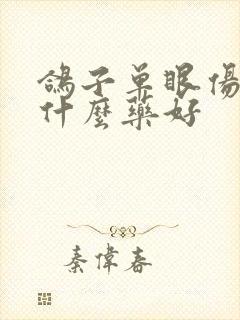 鴿子單眼傷
什麼藥好
秦偉春